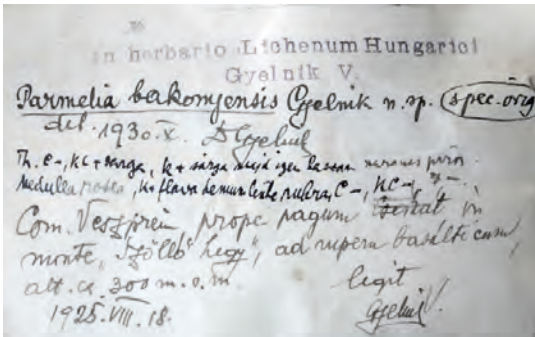 in herbario Lichenum Hungarici
Gyelnik V.
Parmelia bakonyensis Gyelnik n. sp. (spec. orig
det. 1930. X. Dr Gyelnik
Th. C-, KC + sárga, K + sárga majd igen lassan
Medulla K + flava demum lente rubra, C-, KC-,
Com. Veszprém prope pagum in
monte, "Szőllő hegy", ad rupem basalticam,
alt. ca. 300 m. o. m. legit
1925. VIII. 18. Gyelnik V.